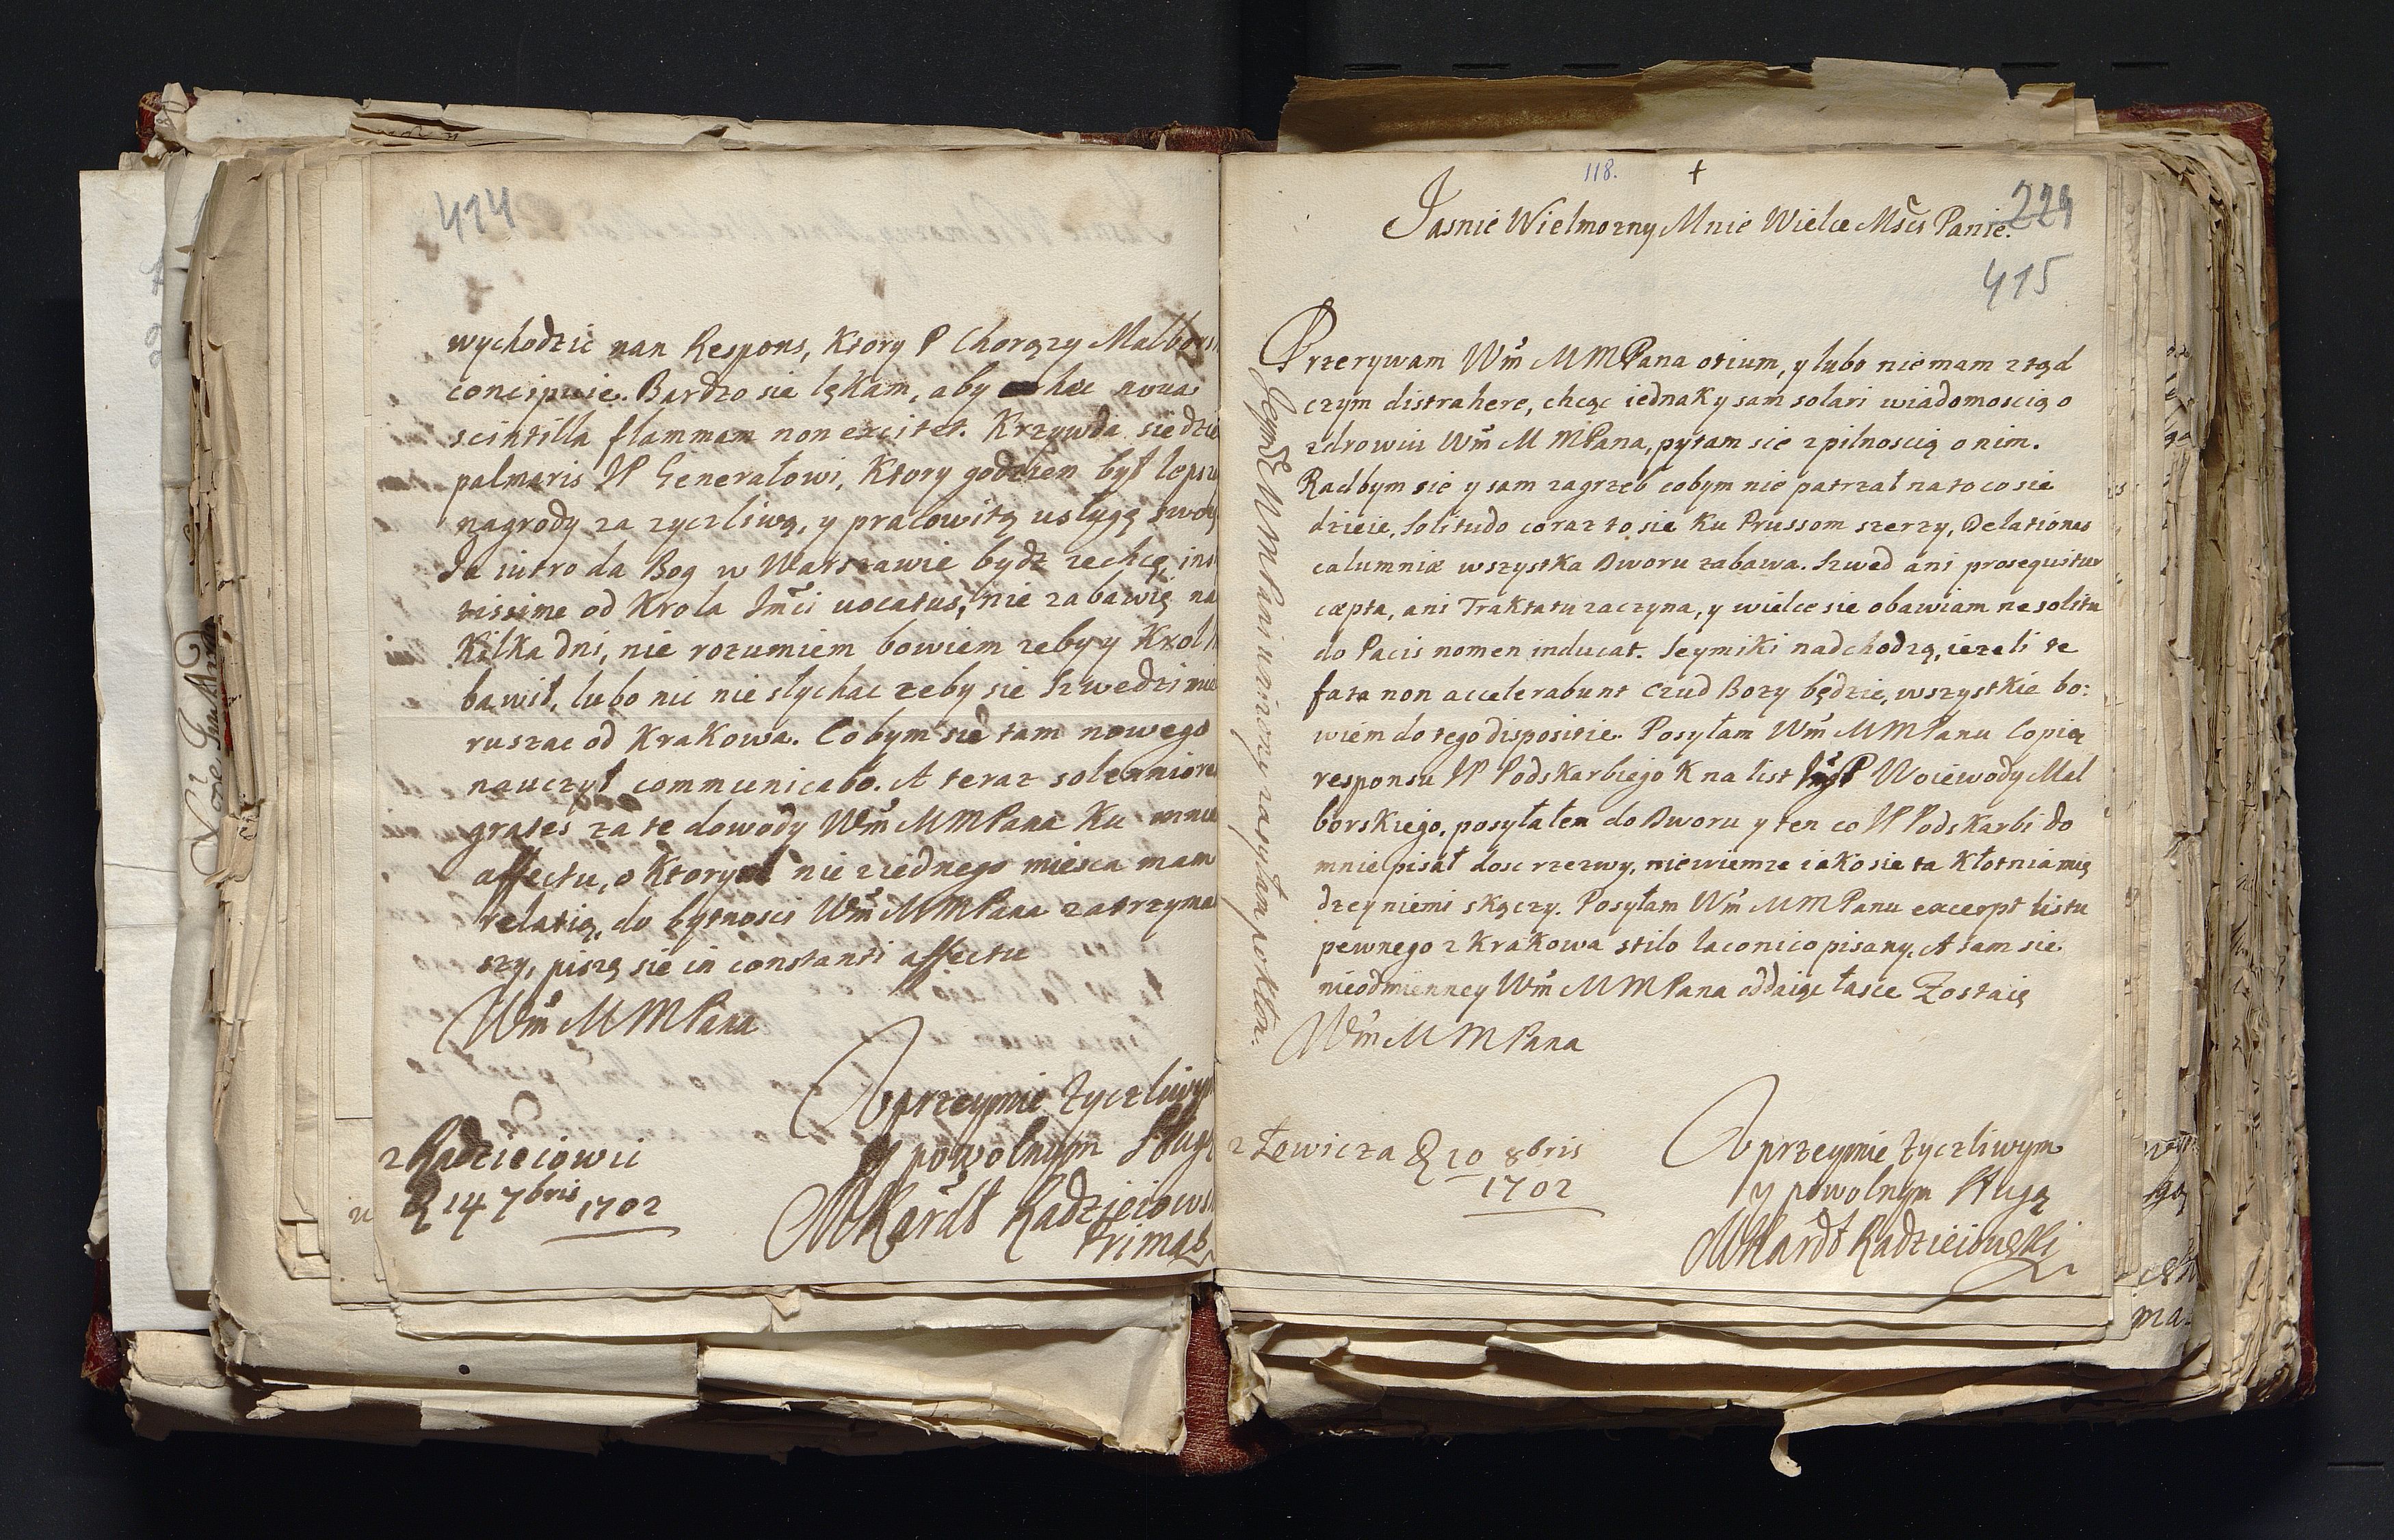 414
wychodzić nan Respons, Ktory P Chorązy Malbors
concipuie. Bardzo sie lękam, aby hæc nova
scintilla flammam non excitet. Krzywda sie dzie
palmaris JP Generałowi, Ktory godzien był lepsze
nagrody za zyczliwą, y pracowitą usługę swoię
Ja iutro da Bog w Warszawie bydz zechcę, ins
tissime od Krola Jmći vocatus, nie zabawię na
Kilka dni, nie rozumiem bowiem zeby y Krol
bawił, lubo nic nie słychac zeby sie Szwedzi mie
ruszac od Krakowa. Cobym sie tam nowego
nauczył communicabo. A teraz solenniores
grates za te dowody Wm̃ M M Pana Ku mnie
affectu, o Ktorych nie z iednego miesca mam
relatią, do bytnosci Wm̃ M M Pana zatrzyma
szy, piszę sie in constanti affectu
Wm̃ M M Pana
Uprzeymie zyczliwym
y powolnym Sługą
MKardt Radzieiows
Primas
z Radzieiowic
D 14 7bris 1702
118.
+
229
Jasnie Wielmozny Mnie Wielce Mśći Panie.
415
Przerywam Wm̃ M M Pana otium, y lubo nie mam ztąd
czym distrahere, chcąc iednak y sam solari wiadomoscią o
zdrowiu Wm̃ M M Pana, pytam sie z pilnoscią o nim.
Radbym sie y sam zagrzeb cobym nie patrzał na to co sie
dzieie, Solitudo coraz to sie Ku Prussom szerzy, Delationes
calumniæ wszystka Dworu zabawa. Szwed ani prosequitur
cæpta, ani Traktatu zaczyna, y wielce sie obawiam ne solitu
do Pacis nomen inducat. Seymiki nadchodzą, iezeli te
fata non accelerabunt czud Bozy będzie, wszystkie bo:
wiem do tego dispositie. Posyłam Wm̃ M M Panu Copią
responsu JP Podskarbiego K na list P Woiewody Mal
borskiego, posyłałem do Dworu y ten co JP Podskarbi do
mnie pisał dosc rzezwy, nie wiem ze iako sie ta Kłotnia mię
dzey niemi skączy. Posyłam Wm̃ M M Panu excerpt listu
pewnego z Krakowa stilo laconico pisany. A sam sie
nieodmienney Wm̃ M M Pana oddaiąc łasce Zostaię
Wm̃ M M Pana
Uprzeymie zyczliwym
y powolnym Sługą
MKardt Radzieiowski
z Łowicza D 20 8bris
1702
M Pani unizony zasyłam pokłon.